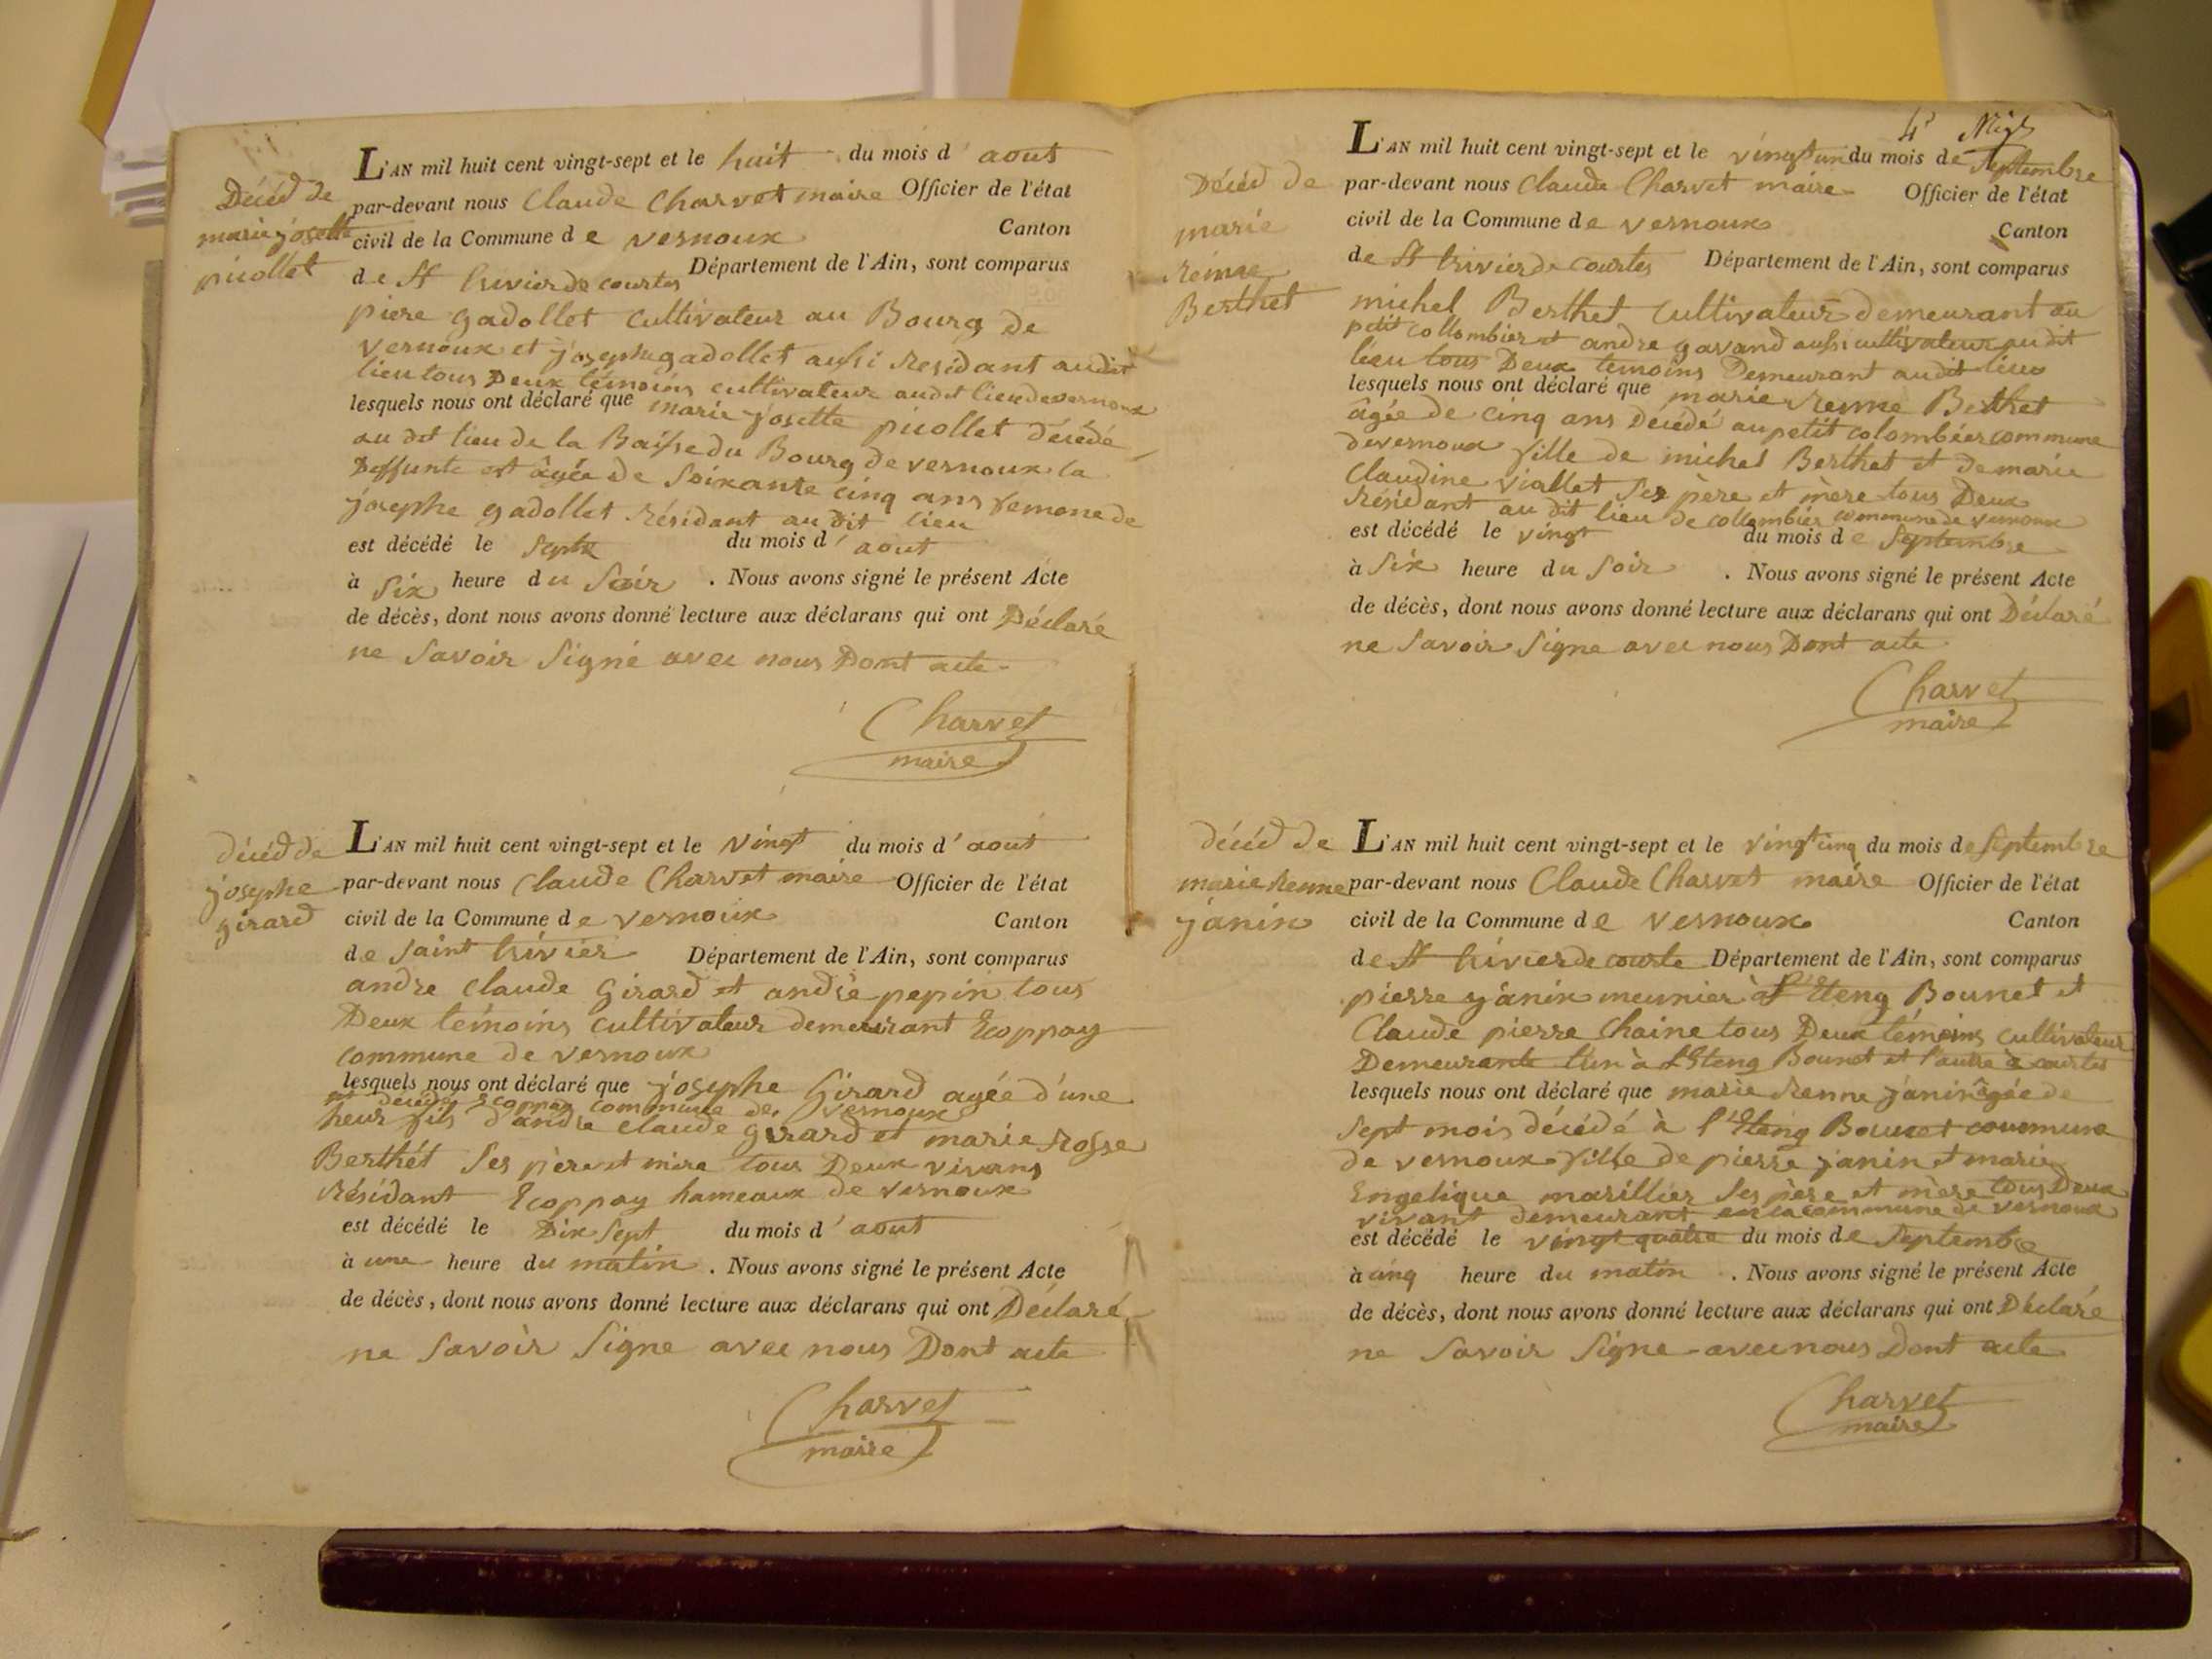 Décéd de
marie josette
picollet
L'AN mil huit cent vingt-sept et le huit du mois d'aout
par-devant nous Claude Charvet maire Officier de l'état
civil de la Commune de vernoux Canton
de St trivier de courtes Département de l'Ain, sont comparus
piere gadollet cultivateur au Bourg de
vernoux et josephe gadollet aussi residant audit
lieu tous Deux témoins cultivateur audit lieu de vernoux
lesquels nous ont déclaré que marie josette picollet décédé
au dit lieu de la Baisse du Bourg de vernoux la
Deffunte est âgée de soixante cinq ans femme de
josephe gadollet résidant au dit lieu
est décédé le sept du mois d'aout
à six heure du soir . Nous avons signé le présent Acte
de décès, dont nous avons donné lecture aux déclarans qui ont Déclaré
ne savoir signé avec nous Dont acte
Charvet
maire
décéd de
josephe
girard
L'AN mil huit cent vingt-sept et le vingt du mois d'aout
par-devant nous Claude Charvet maire Officier de l'état
civil de la Commune de vernoux Canton
de saint trivier Département de l'Ain, sont comparus
andre claude girard et andré pepin tous
Deux témoins cultivateur demeurant Ecoppay
commune de vernoux
lesquels nous ont déclaré que josephe girard agée d'une
et décédé Ecoppay commune de vernoux
heur fils d'andre claude girard et marie rosse
Berthét ses père et mère tous Deux vivans
résidant Ecoppay hameaux de vernoux
est décédé le Dix sept du mois d'aout
à une heure du matin . Nous avons signé le présent Acte
de décès, dont nous avons donné lecture aux déclarans qui ont Déclaré
ne savoir signe avec nous Dont acte
Charvet
maire
4e
Décéd de
marie
reinne
Berthet
L'AN mil huit cent vingt-sept et le vingt un du mois de septembre
par-devant nous Claude Charvet maire Officier de l'état
civil de la Commune de vernoux Canton
de St trivier de courtes Département de l'Ain, sont comparus
michel Berthet cultivateur demeurant au
petit collombier et andre gavand aussi cultivateur audit
lieu tous Deux temoins Demeurant audit lieu
lesquels nous ont déclaré que marie renne Berthet
âgée de cinq ans Décédé au petit colombier commune
de vernoux fille de michel Berthet et de marie
Claudine viallet ses père et mère tous Deux
résidant au dit lieu de collombier commune de vernoux
est décédé le vingt du mois de septembre
à six heure du soir . Nous avons signé le présent Acte
de décès, dont nous avons donné lecture aux déclarans qui ont Déclaré
ne savoir signe avec nous Dont acte
Charvet
maire
décéd de
marie renne
janin
L'AN mil huit cent vingt-sept et le vingt cinq du mois de septembre
par-devant nous Claude Charvet maire Officier de l'état
civil de la Commune de vernoux Canton
de St trivier de courte Département de l'Ain, sont comparus
pierre janin meunier à l'Eteng Bounet et
Claude pierre Chaine tous Deux témoins cultivateur
Demeurante l'un à l'Eteng Bounet et l'autre à courtes
lesquels nous ont déclaré que marie renne janin âgée de
sept mois décédé à l'Eteng Bounet commune
de vernoux fille de pierre janin et marie
Engelique marillier ses père et mère tous Deux
vivant demeurant en la commune de vernoux
est décédé le vingt quatre du mois de septembre
à cinq heure du matin . Nous avons signé le présent Acte
de décès, dont nous avons donné lecture aux déclarans qui ont Déclaré
ne savoir signe avec nous Dont acte
Charvet
maire